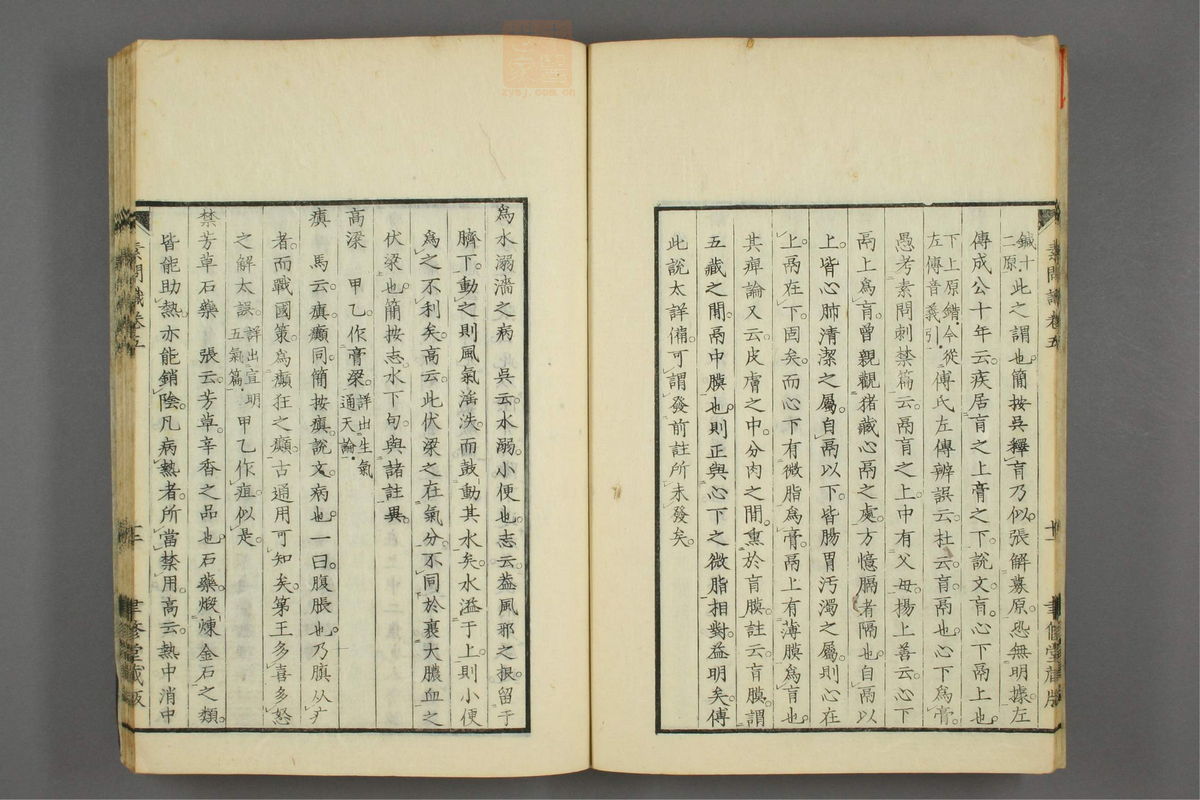 素問識卷五
鍼十二原
此之謂也簡按吳釋肓乃似張解募原恐無明據左
傳成公十年云疾居肓之上膏之下說文肓心下鬲上也
下上原錯今從左傳音義引
傅氏左傳辨誤云杜云肓鬲也心下爲膏
愚考素問刺禁篇云鬲肓之上中有父母楊上善云心下
鬲上爲肓曾親觀猪藏心鬲之處方憶膈者隔也自鬲以
上皆心肺清潔之屬自鬲以下皆腸胃汚濁之屬則心在
上鬲在下固矣而心下有微脂爲膏鬲上有薄膜爲肓也
其痺論又云皮膚之中分肉之間熏於肓膜註云肓膜謂
五藏之間鬲中膜也則正與心下之微脂相對益明矣傅
此說太詳備可謂發前註所未發矣
爲水溺濇之病 吳云水溺小便也志云葢風邪之根留于
臍下動之則風氣淫泆而鼓動其水矣水溢于上則小便
爲之不利矣高云此伏梁之在氣分不同於裹大膿血之
伏梁也簡按志水下句與諸註異
高梁 甲乙作膏梁
詳出生氣通天論
瘨 馬云瘨癲同簡按瘨說文病也一曰腹脹也乃䐜从疒
者而戰國策爲癲狂之癲古通用可知矣第王多喜多怒
之解太誤
詳出宣明五氣篇
甲乙作疽似是
禁芳草石藥 張云芳草辛香之品也石藥煅煉金石之類
皆能助熱亦能銷陰凡病熱者所當禁用高云熱中消中
素問識卷五
聿修堂藏版
zysj.com.cn